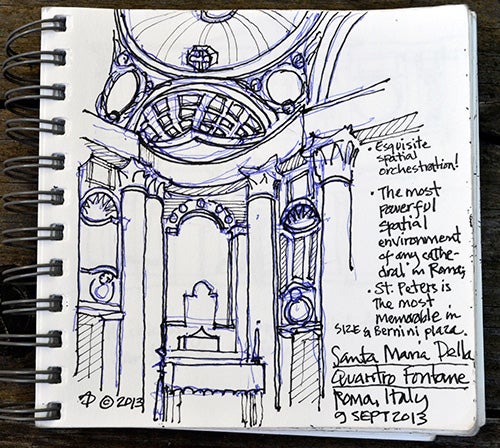 • Exquisite
spatial
orchestration!
• The most
powerful
spatial
environment
of any cathe-
dral in Rome;
• St. Peters is
The most
Memorable in
SIZE & Bernini plaza.
Santa Maria Della
Quartro Fontane
Roma, Italy
9 SEPT 2013
© 2013